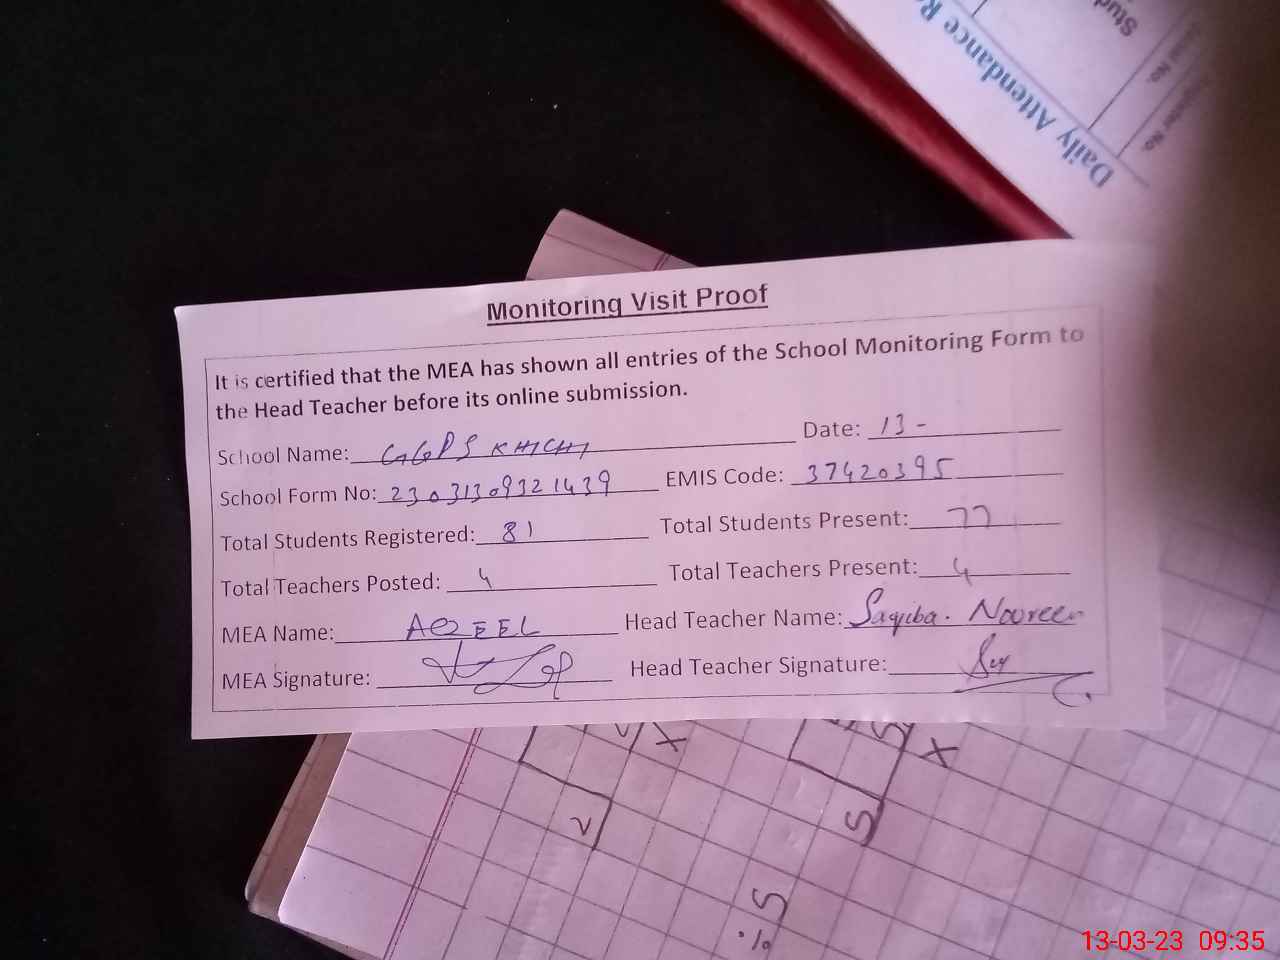 Daily Attendance R
Stud
No.
Monitoring Visit Proof
It is certified that the MEA has shown all entries of the School Monitoring Form to
the Head Teacher before its online submission.
School Name: GGPS KHICHI Date: 13-
School Form No: 23031309321439 EMIS Code: 37420395
Total Students Registered: 81 Total Students Present: 77
Total Teachers Posted: 4 Total Teachers Present: 4
MEA Name: AQEEL Head Teacher Name: Saqiba. Noureen
MEA Signature: Head Teacher Signature:
13-03-23 09:35